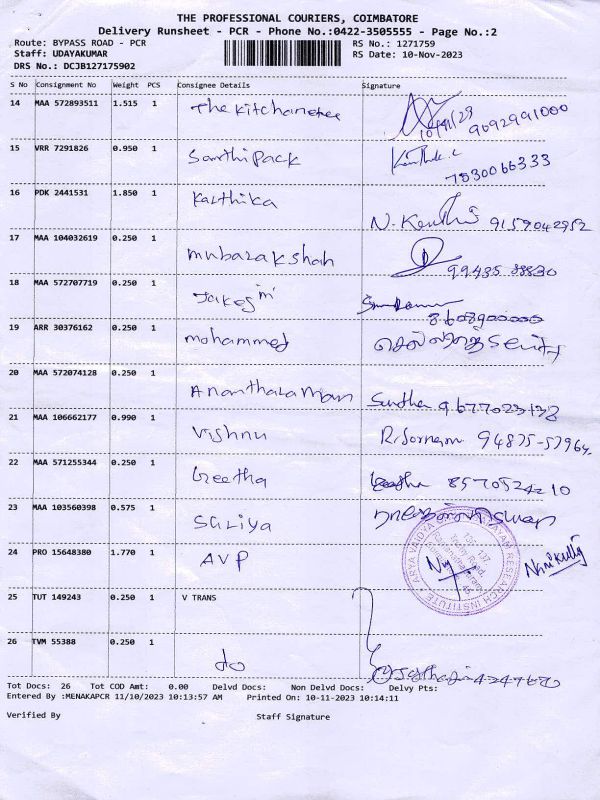 THE PROFESSIONAL COURIERS, COIMBATORE
Delivery Runsheet - PCR - Phone No.:0422-3505555 - Page No.:2
Route: BYPASS ROAD - PCR RS No.: 1271759
Staff: UDAYAKUMAR RS Date: 10-Nov-2023
DRS No.: DCJB127175902
S No Consignment No Weight PCS Consignee Details Signature
14 MAA 572893511 1.515 1 The Kitchanetee
10/11/23 9092991000
15 VRR 7291826 0.950 1 Santhi Pack
7530066333
16 PDK 2441531 1.850 1 Karthika
N. 9159042952
17 MAA 104032619 0.250 1 mubarak shah
18 MAA 572707719 0.250 1
8608900000
19 ARR 30376162 0.250 1 mohammed
20 MAA 572074128 0.250 1 Anantharaman
9677023132
21 MAA 106662177 0.990 1 Vishnu
94875-57964
22 MAA 571255344 0.250 1 Geetha
8570524210
23 MAA 103560398 0.575 1
24 PRO 15648380 1.770 1 AVP
ARYA VAIDYA RESEARCH INSTITUTE
25 TUT 149243 0.250 1 V TRANS
26 TVM 55388 0.250 1 do
Tot Docs: 26 Tot COD Amt: 0.00 Delvd Docs: Non Delvd Docs: Delvy Pts:
Entered By :MENAKAPCR 11/10/2023 10:13:57 AM Printed On: 10-11-2023 10:14:11
Verified By Staff Signature